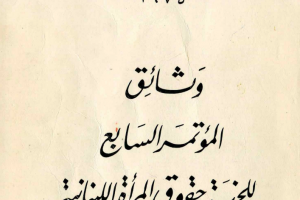 وثائق
المؤتمر السابع
للجنة حقوق المرأة اللبنانية